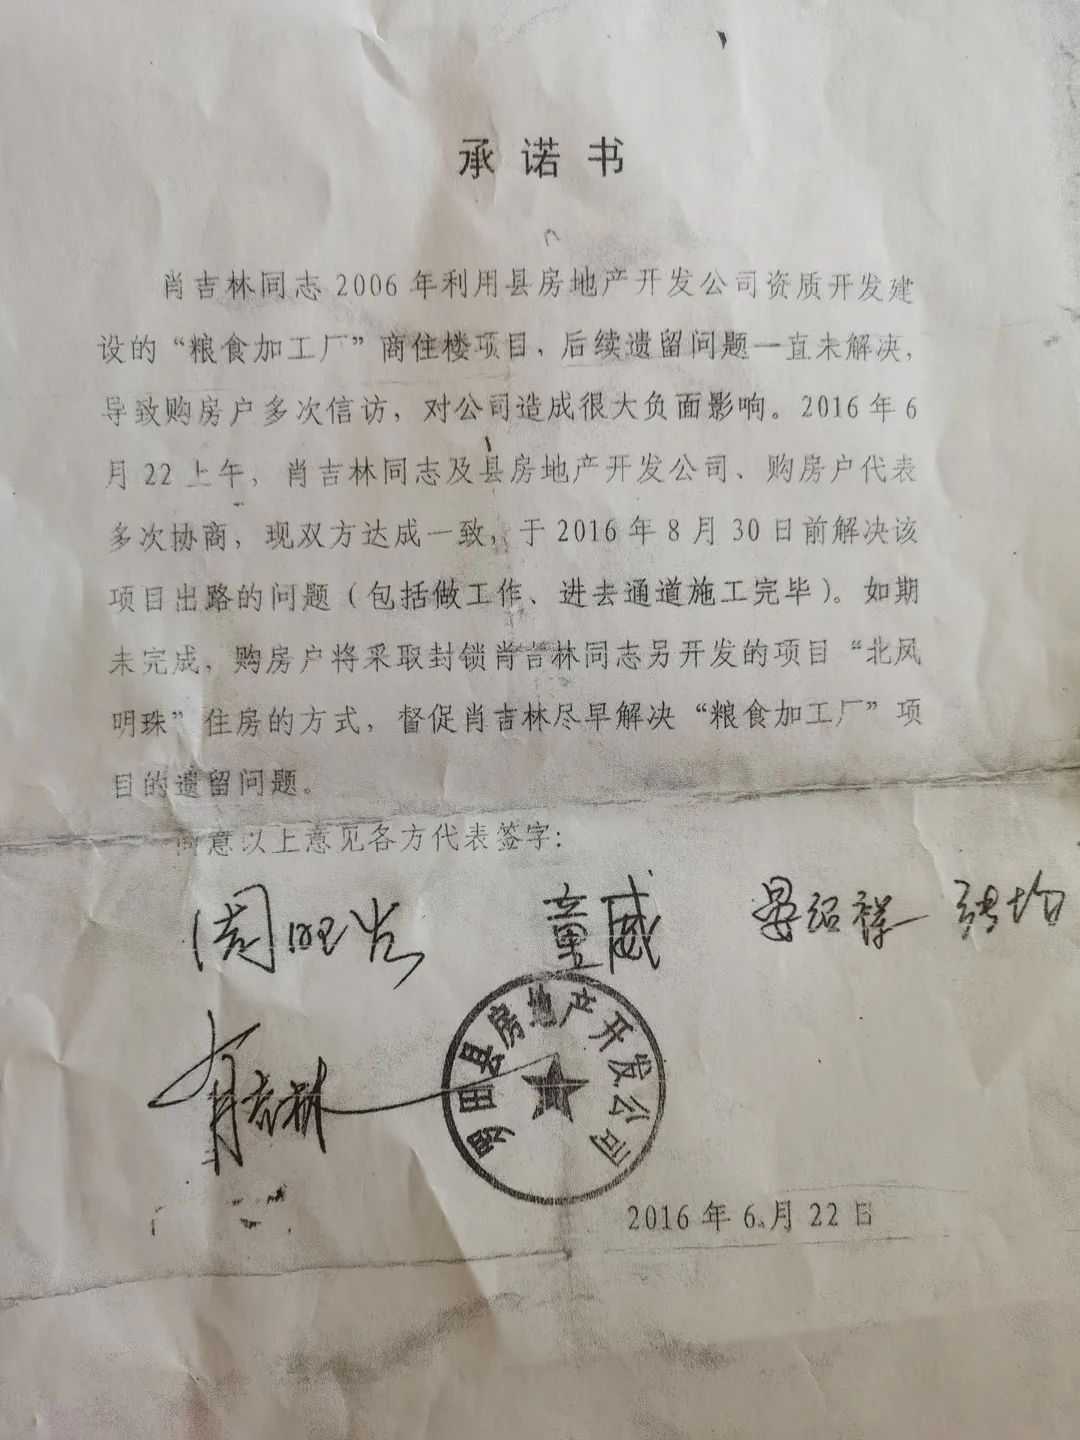 承诺书
肖吉林同志2006年利用县房地产开发公司资质开发建
设的“粮食加工厂”商住楼项目，后续遗留问题一直未解决，
导致购房户多次信访，对公司造成很大负面影响。2016年6
月22上午，肖吉林同志及县房地产开发公司、购房户代表
多次协商，现双方达成一致，于2016年8月30日前解决该
项目出路的问题（包括做工作、进去通道施工完毕）。如期
未完成，购房户将采取封锁肖吉林同志另开发的项目“北凤
明珠”住房的方式，督促肖吉林尽早解决“粮食加工厂”项
目的遗留问题。
同意以上意见各方代表签字：
童威 晏绍祥
肖吉林
男田县房地产开发公司
2016年6月22日